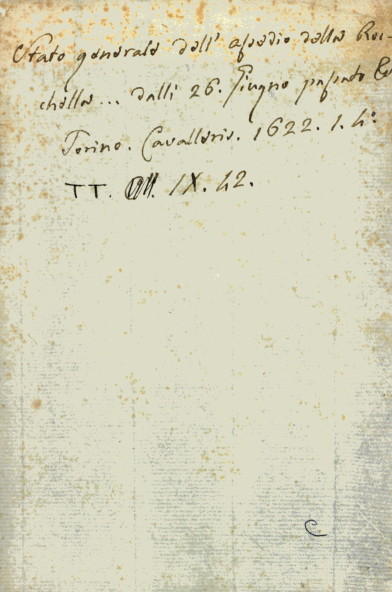 Stato generale dell' assedio della Roc-
chella... dalli 26. Giugno passato
Torino. Cavalleris. 1622. 1. 4°
TT. IX. 42.
C